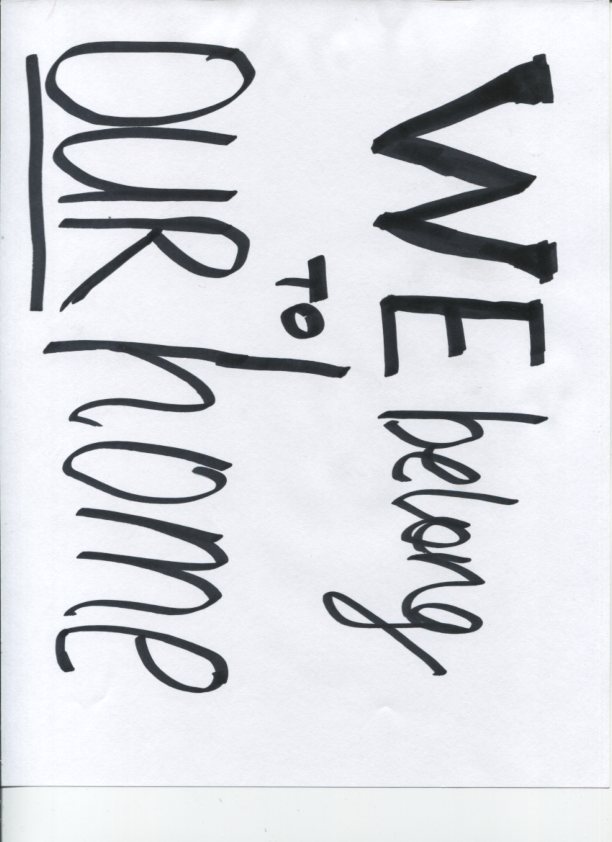 WE belong
TO
OUR home